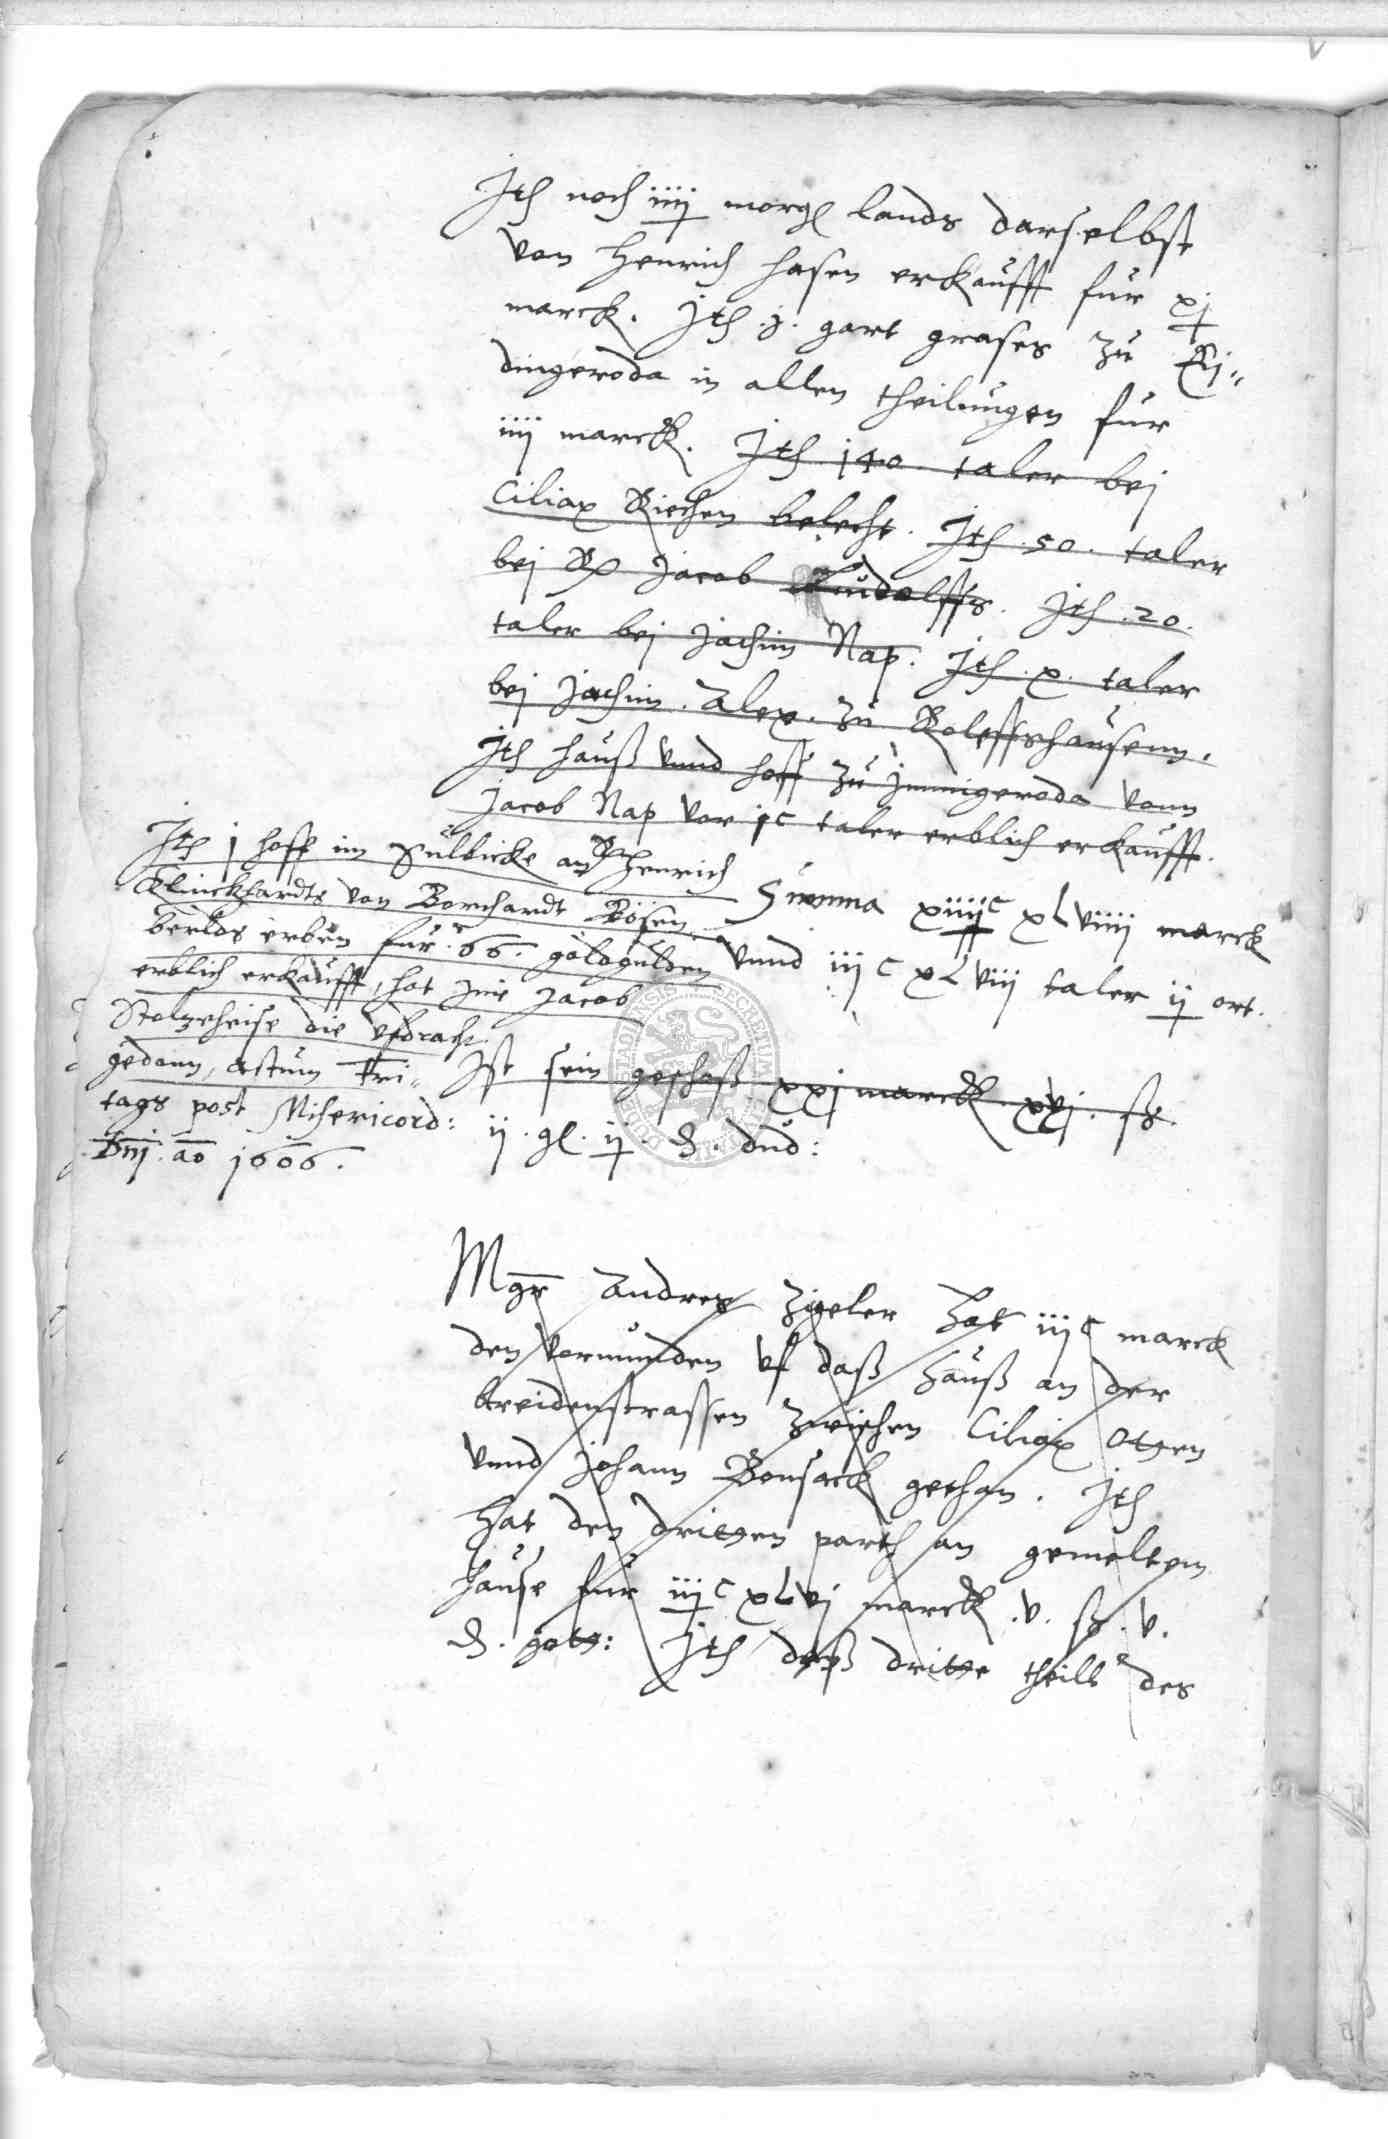 Jth noch iiij morg lands darselbst
von Henrich Hasen erkaufft für xj
marck. Jth .j. gart grases zu
dingeroda in allen theilungen für
iiij marck. Jth 140 taler bej
Ciliax Riechen belecht. Jth .50. taler
bej H Jacob Ludolffs. Jth .20.
taler bej Jachim Nap. Jth .x. taler
bej Jachim . Alex . zu Roleffshausenn.
Jth hauß vnnd hoff zu Jmmigeroda vonn
Jacob Nap vor jc taler erblich erkaufft.
Jth j hoff im Sulbicke an H Henrich
Klinckhardts von Borchardt Bösen
berlds erben für .66. goldgulden
erblich erkaufft, hat ime Jacob
Stolzeheise die vfdracht
gedann, actum Fri-
tags post Misericord:
Dnj. ao 1606.
Summa xiiijc xLviiij marck
vnnd iijc xLviij taler ij ort.
Jst sein geschoß xxj marck. xvj. sz.
ij. gl. ij. d. dnd:
Mgr Andres Zigeler hat iijc marck
den vormunden vf daß hauß an der
kreidenstrassen zwischen Ciliax Otzen
vnnd Johann Bonsack gethan. Jth
hat den dritten parth an gemeltem
hause für iijc xLvj marck .v. sz. v.
d. gott: Jth daß dritte theill des